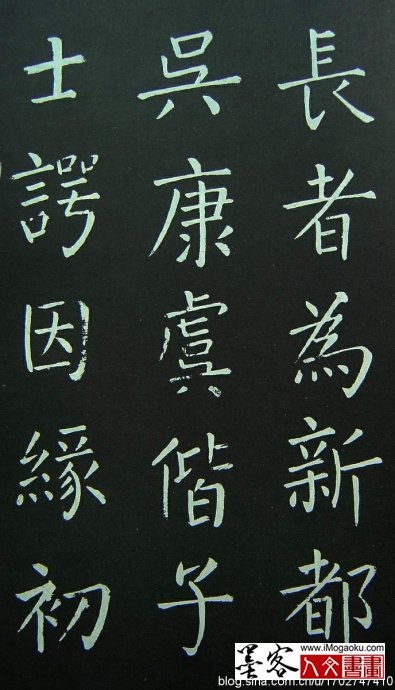 長者為新都
吳康虞偕子
士諤因緣初
www.iMogaoku.com
墨客人文書画
blog.sina.com.cn/u/1702747410